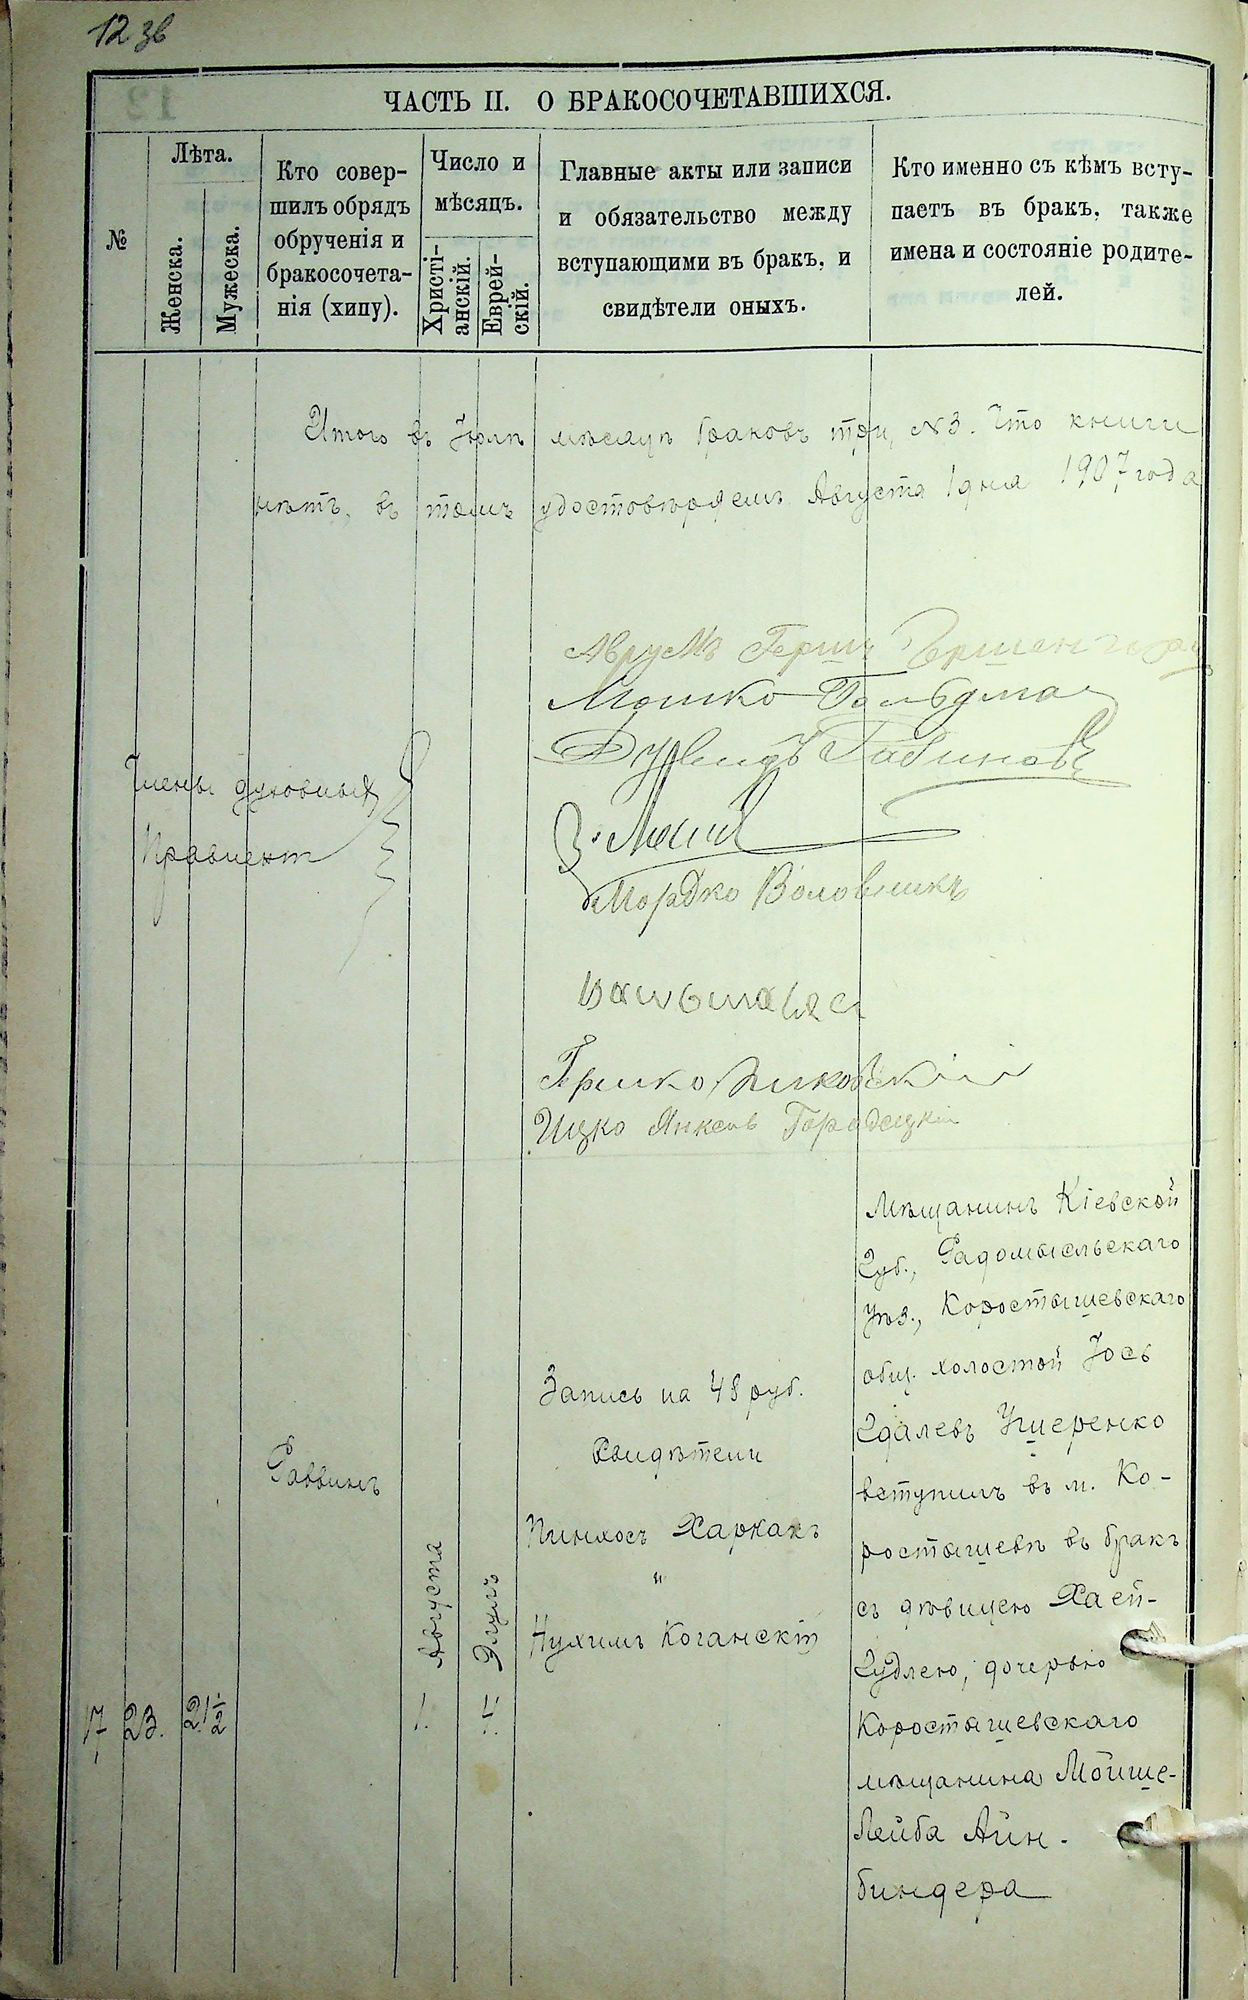 12 зв
ЧАСТЬ II. О БРАКОСОЧЕТАВШИХСЯ.
№
Лѣта.
Женска.
Мужеска.
Кто совер-
шилъ обрядъ
обрученія и
бракосочета-
нія (хипу).
Число и
мѣсяцъ.
Христі-
анскій.
Еврей-
скій.
Главные акты или записи
и обязательство между
вступающими въ бракъ, и
свидѣтели оныхъ.
Кто именно съ кѣмъ всту-
паетъ въ бракъ, также
имена и состояніе родите-
лей.
Итого въ Іюлѣ мѣсяцѣ браковъ три, №3. Что книги
въ томъ удостовѣряемъ Августа 1 дня 1907 года
Аврумъ Гершъ
Мошко Гольдман
Дувидъ Рабиновъ
Члены духовныя
Правлент
Мордко Воловникъ
Ицко Янкель Городецкій
17
23.
21 1/2
Раввинъ
Августа
1.
Элулъ
Запись на 48 руб.
Свидѣтели
Пинхосъ Харкакъ
"
Нухимъ Коганскій
Мѣщанинъ Кіевской
Губ., Радомысльскаго
Уѣз., Коростышевскаго
общ. холостой Іось
Сдалевъ Ушеренко
вступилъ въ м. Ко-
ростышевѣ въ бракъ
съ дѣвицею Хаей-
Судлею, дочерью
Коростышевскаго
мѣщанина Мойше-
Лейба Айн-
биндера